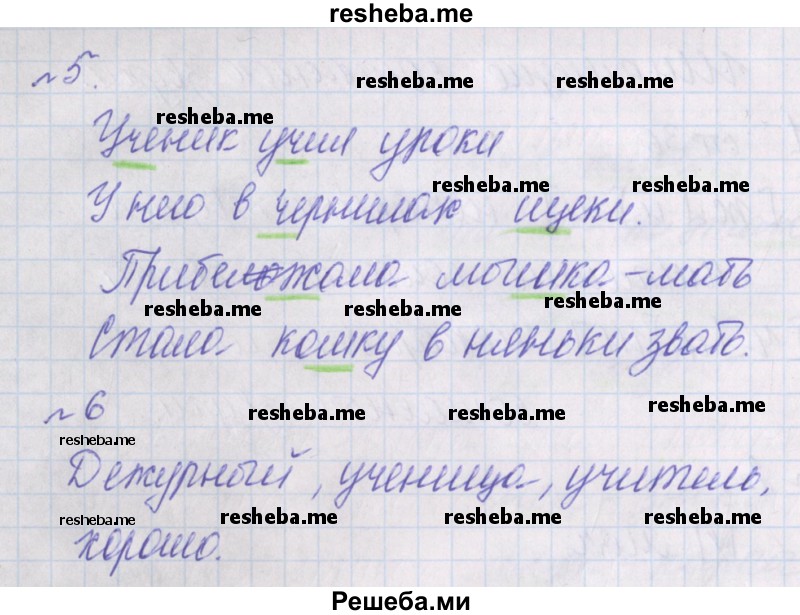 resheba.me
№5.
resheba.me resheba.me
resheba.me
Ученик учил уроки
resheba.me resheba.me
У него в чернилах щеки.
Прибежала мышка-мать
resheba.me resheba.me resheba.me
Стала кошку в няньки звать.
№6
resheba.me resheba.me resheba.me
resheba.me
Дежурный, ученица, учитель,
resheba.me resheba.me resheba.me resheba.me
хорошо.
Решеба.ми